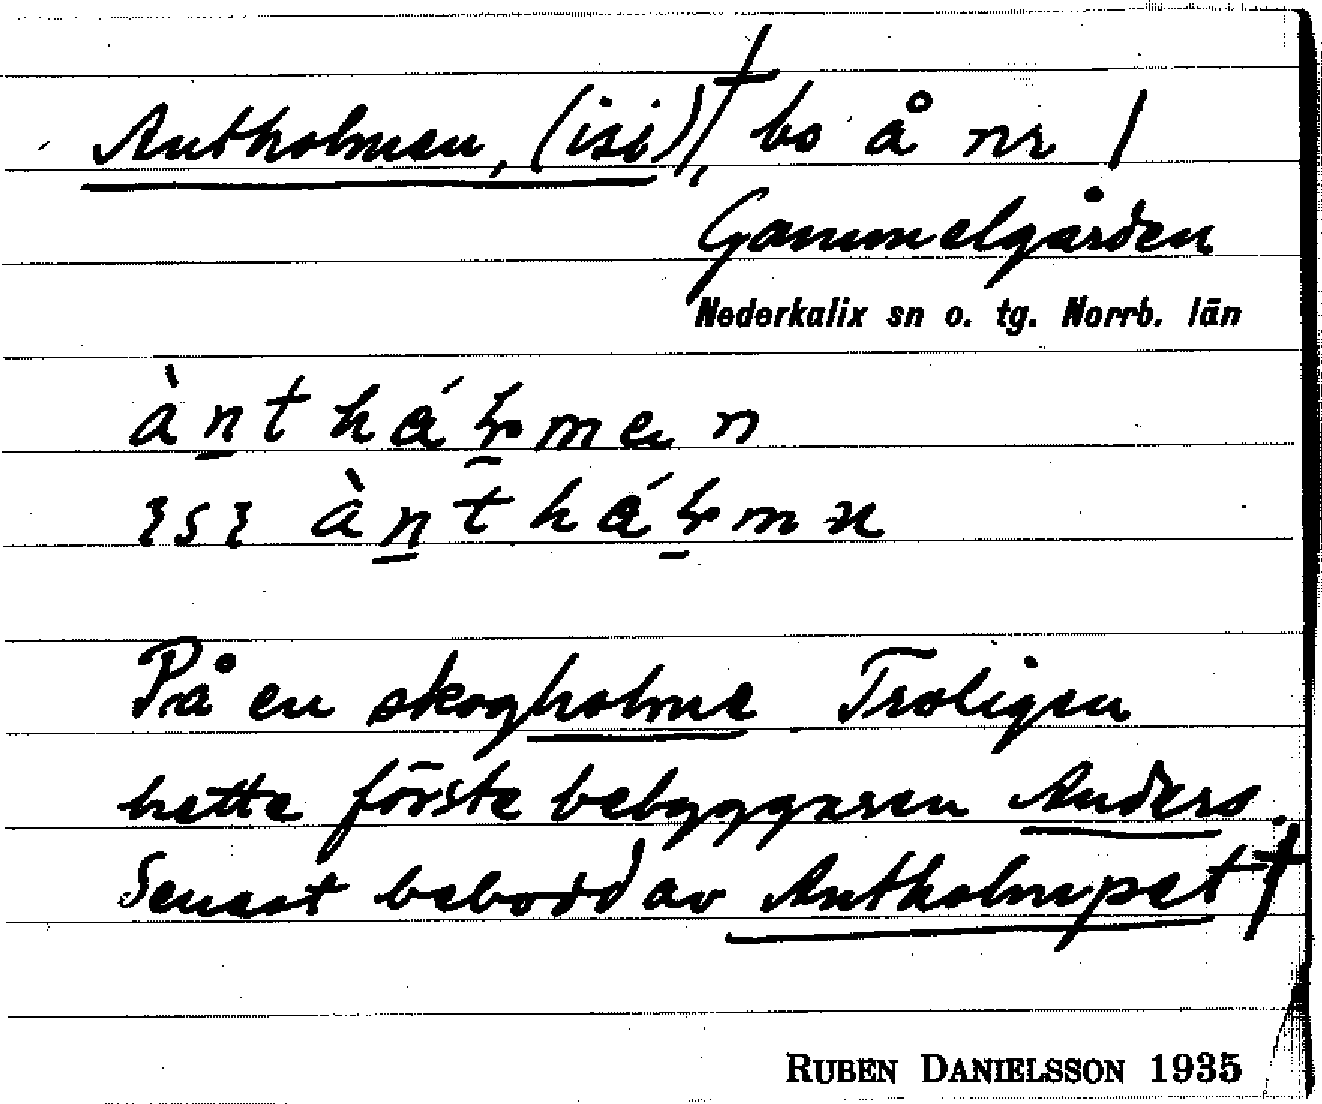 Antholmen, (isi)†, bo å nr 1
Gammelgården
Nederkalix sn o. tg. Norrb. län
På en skogholme Troligen
hette förste bebyggaren Anders.
Senast bebodd av Antholmpet†
RUBEN DANIELSSON 1935